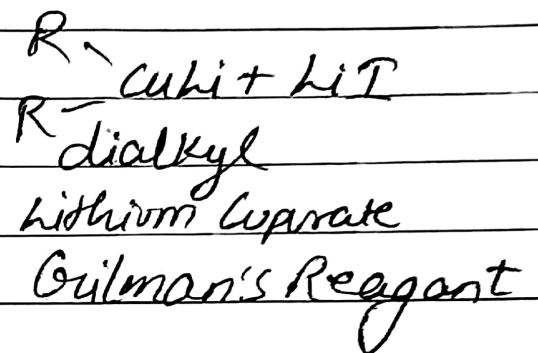 R
CuLi + LiI
R
dialkyl
Lithium Cuprate
Gilman's Reagant